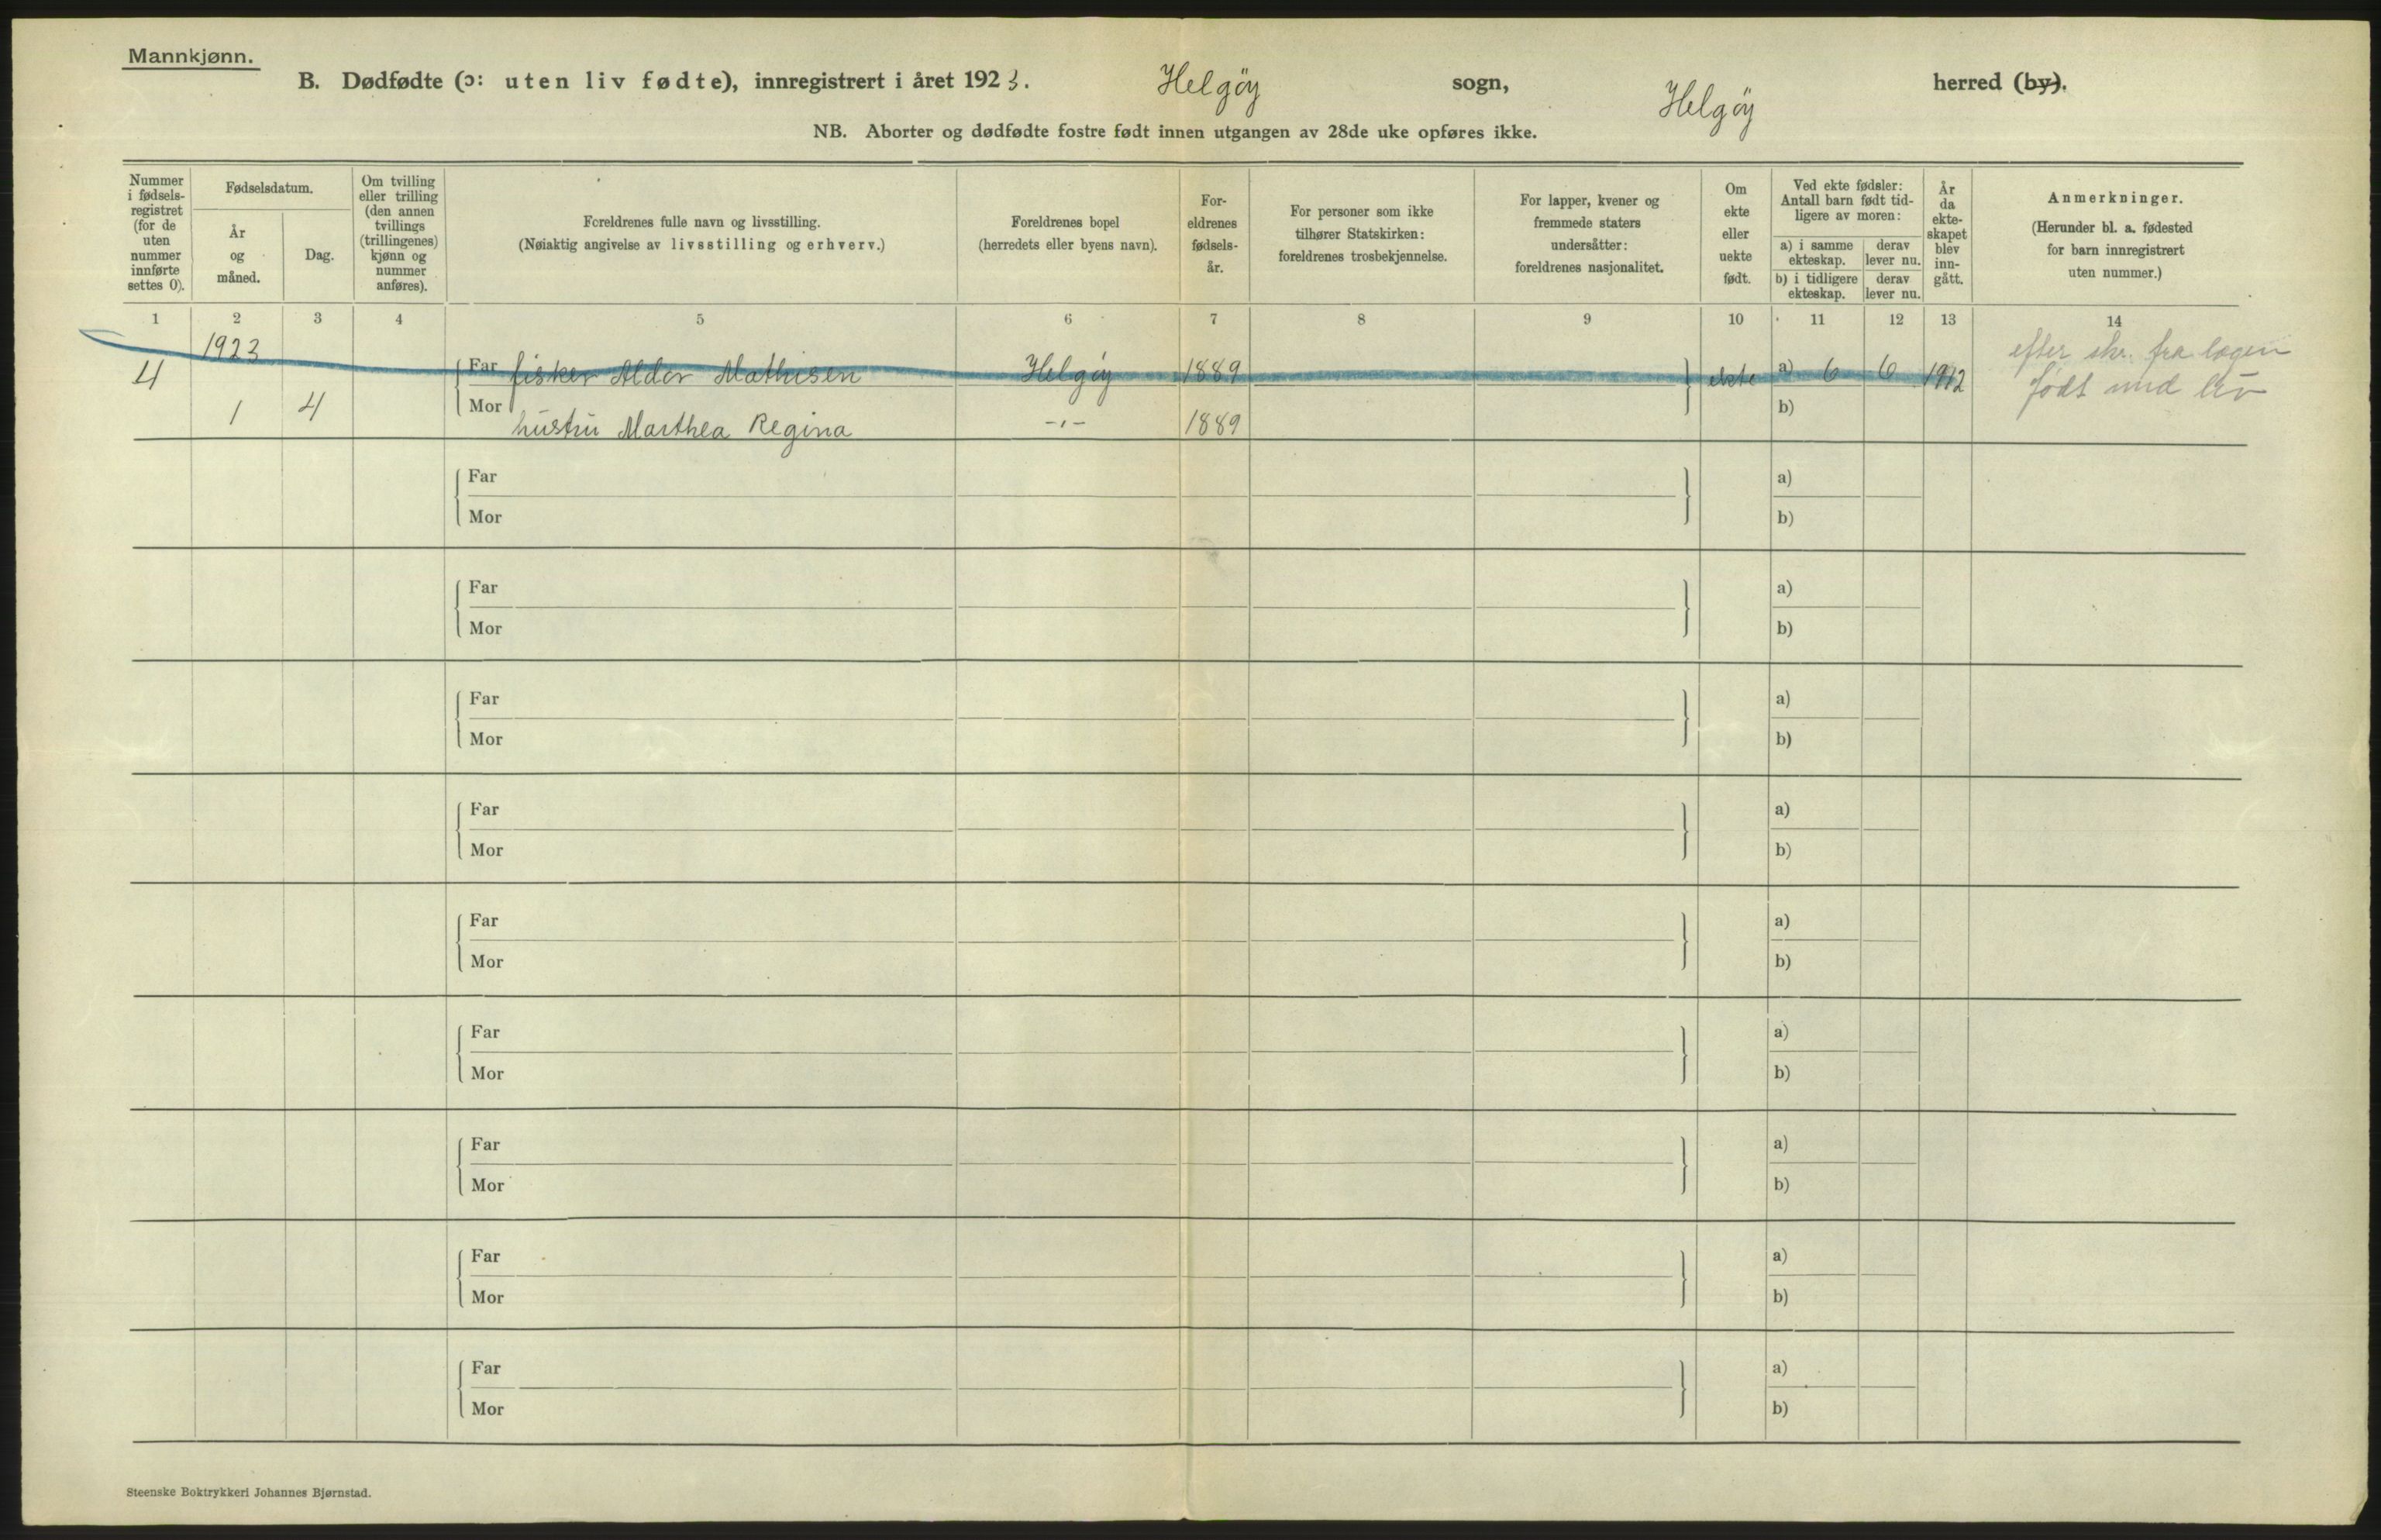 Mannkjønn.
B. Dødfødte (ɔ: uten liv fødte), innregistrert i året 1923. Helgøy sogn, Helgøy herred (by).
NB. Aborter og dødfødte fostre født innen utgangen av 28de uke opføres ikke.
Nummer
i fødsels-
registret
(for de
uten
nummer
innførte
settes 0).
Fødselsdatum.
År
og
måned.
Dag.
Om tvilling
eller trilling
(den annen
tvillings
(trillingenes)
kjønn og
nummer
anføres).
Foreldrenes fulle navn og livsstilling.
(Nøiaktig angivelse av livsstilling og erhverv.)
Foreldrenes bopel
(herredets eller byens navn).
For-
eldrenes
fødsels-
år.
For personer som ikke
tilhører Statskirken:
foreldrenes trosbekjennelse.
For lapper, kvener og
fremmede staters
undersåtter:
foreldrenes nasjonalitet.
Om
ekte
eller
uekte
født.
Ved ekte fødsler:
Antall barn født tid-
ligere av moren:
a) i samme
ekteskap.
derav
lever nu.
b) i tidligere
ekteskap.
derav
lever nu.
År
da
ekte-
skapet
blev
inn-
gått.
Anmerkninger.
(Herunder bl. a. fødested
for barn innregistrert
uten nummer.)
1 2 3 4 5 6 7 8 9 10 11 12 13 14
1923
4 Far fisker Aldor Mathisen Helgøy 1889 ekte a) 6 6 1912 efter skr. fra lægen
1 4 Mor hustru Marthea Regina -"- 1889 b) født med liv
Far a)
Mor b)
Far a)
Mor b)
Far a)
Mor b)
Far a)
Mor b)
Far a)
Mor b)
Far a)
Mor b)
Far a)
Mor b)
Far a)
Mor b)
Far a)
Mor b)
Steenske Boktrykkeri Johannes Bjørnstad.